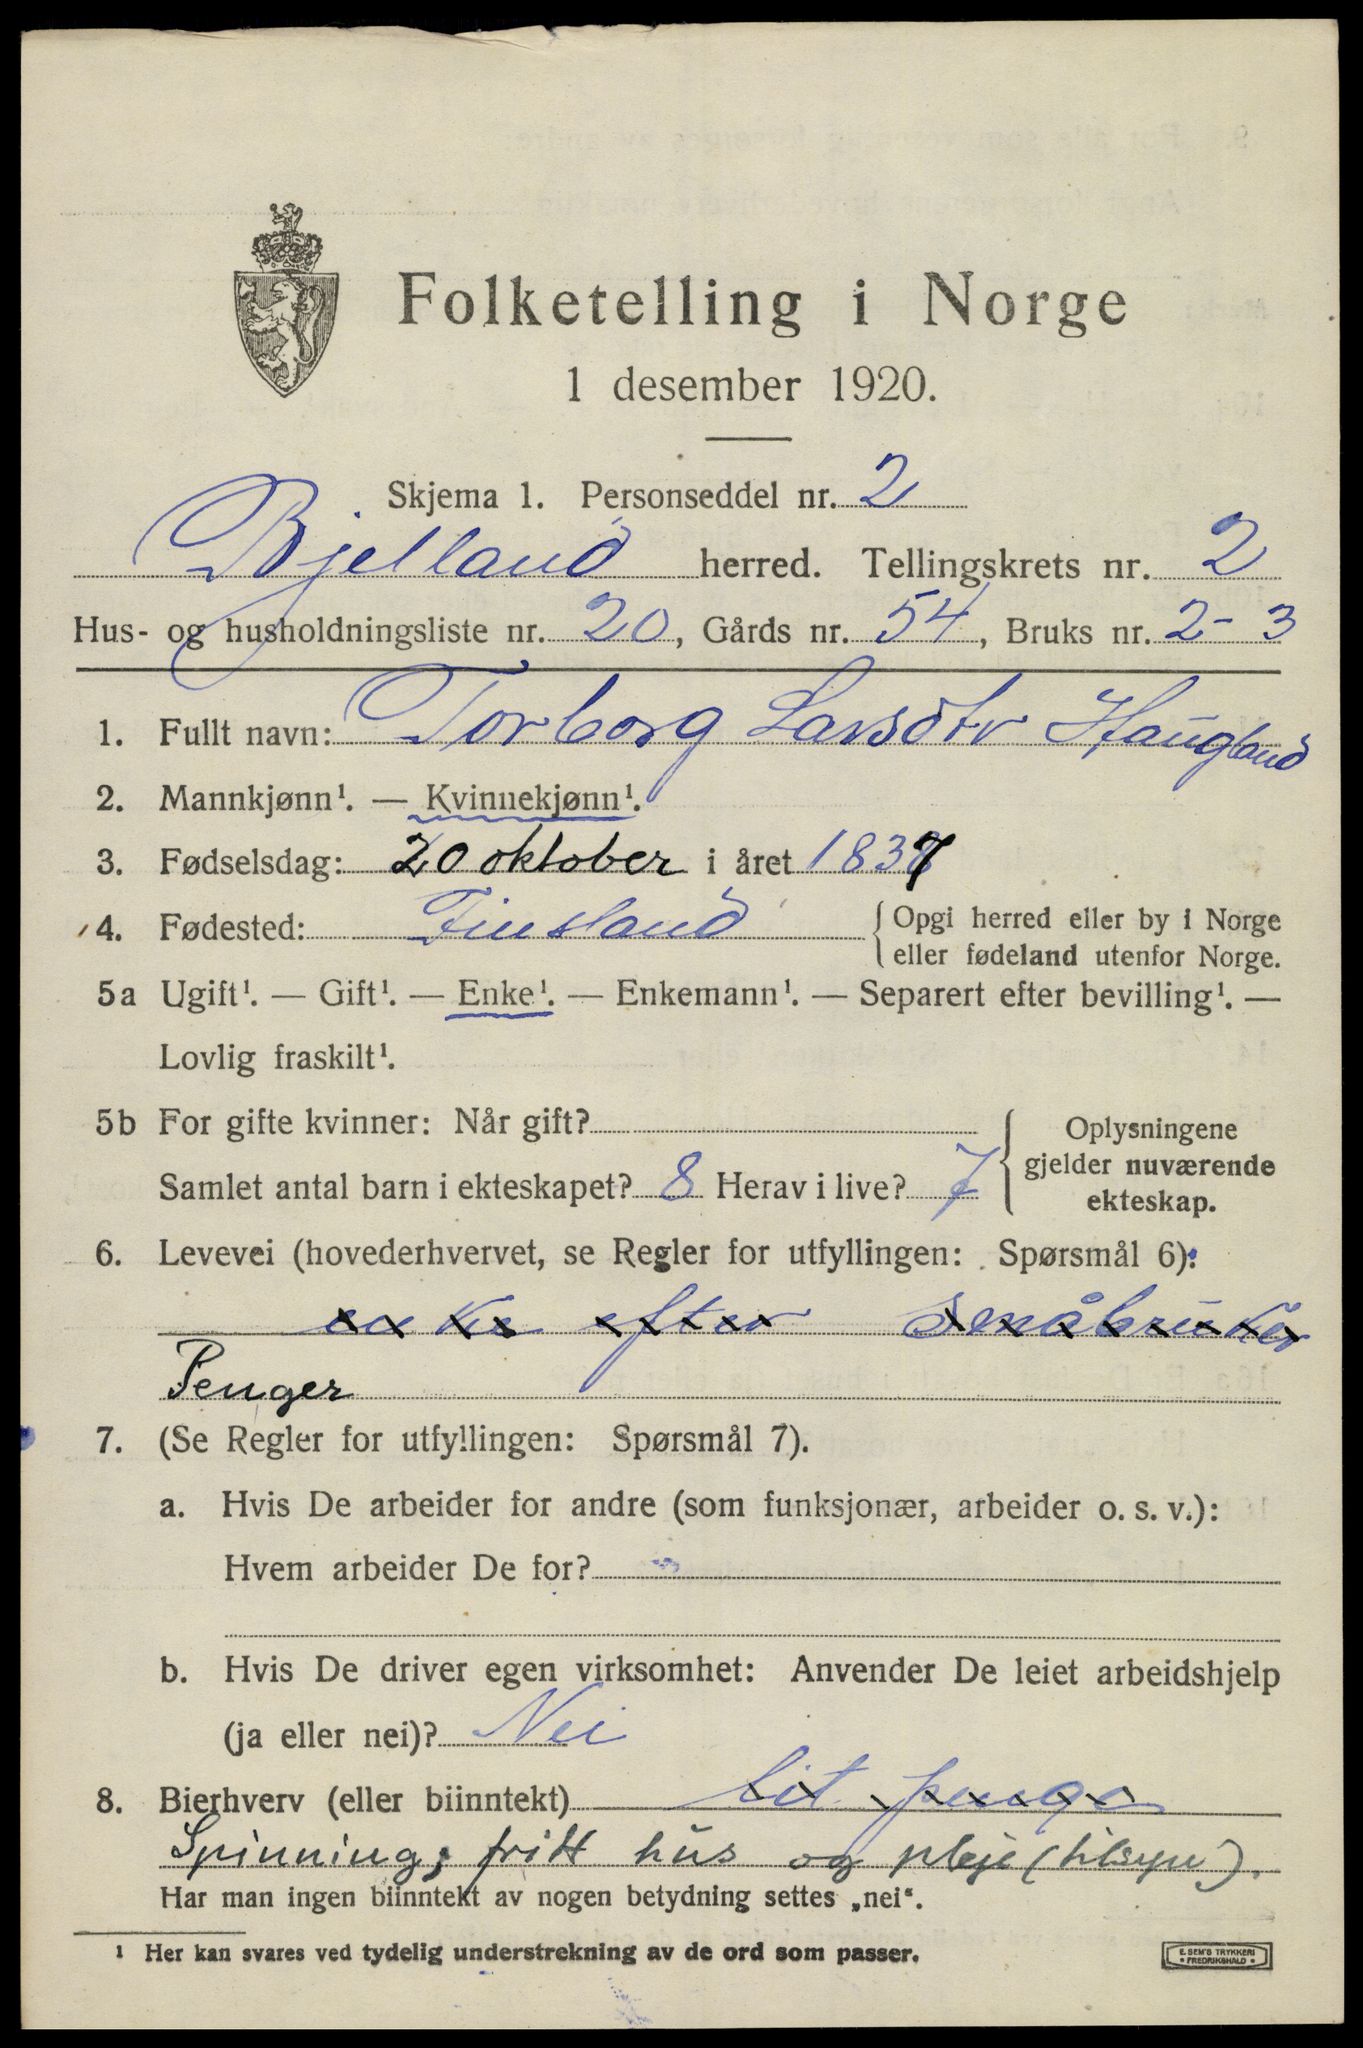 Folketelling i Norge
1 desember 1920.
Skjema 1. Personseddel nr. 2
Bjelland herred. Tellingskrets nr. 2
Hus- og husholdningsliste nr. 20, Gårds nr. 54, Bruks nr. 2-3
1. Fullt navn: Torborg Larsdtr Haugland
2. Mannkjønn¹. — Kvinnekjønn¹.
3. Fødselsdag: 20 oktober i året 1837
4. Fødested: Finsland {Opgi herred eller by i Norge
eller fødeland utenfor Norge.
5a Ugift¹. — Gift¹. — Enke¹. — Enkemann¹. — Separert efter bevilling¹. —
Lovlig fraskilt¹.
5b For gifte kvinner: Når gift?
Samlet antal barn i ekteskapet? 8 Herav i live? 7
Oplysningene
gjelder nuværende
ekteskap.
6. Levevei (hovederhvervet, se Regler for utfyllingen: Spørsmål 6):
enke efter småbruker
Penger
7. (Se Regler for utfyllingen: Spørsmål 7).
a. Hvis De arbeider for andre (som funksjonær, arbeider o. s. v.):
Hvem arbeider De for?
b. Hvis De driver egen virksomhet: Anvender De leiet arbeidshjelp
(ja eller nei)? Nei
8. Bierhverv (eller biinntekt) Lit penge
Spinning; fritt hus og pleje (tilsyn).
Har man ingen biinntekt av nogen betydning settes „nei“.
¹ Her kan svares ved tydelig understrekning av de ord som passer.
E. SEM'S TRYKKERI
• FREDRIKSHALD •